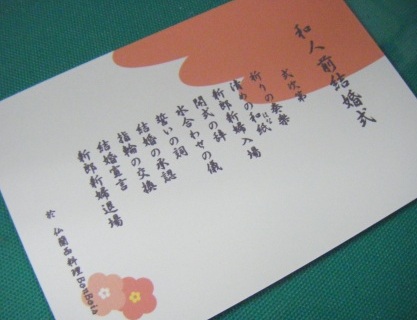 和人前結婚式
式次第
祈りの奏楽
清めの和紙
はな
新郎新婦入場
開式の辞
水合わせの儀
誓いの詞
結婚の承認
指輪の交換
結婚宣言
新郎新婦退場
於 仏蘭西料理BonBois